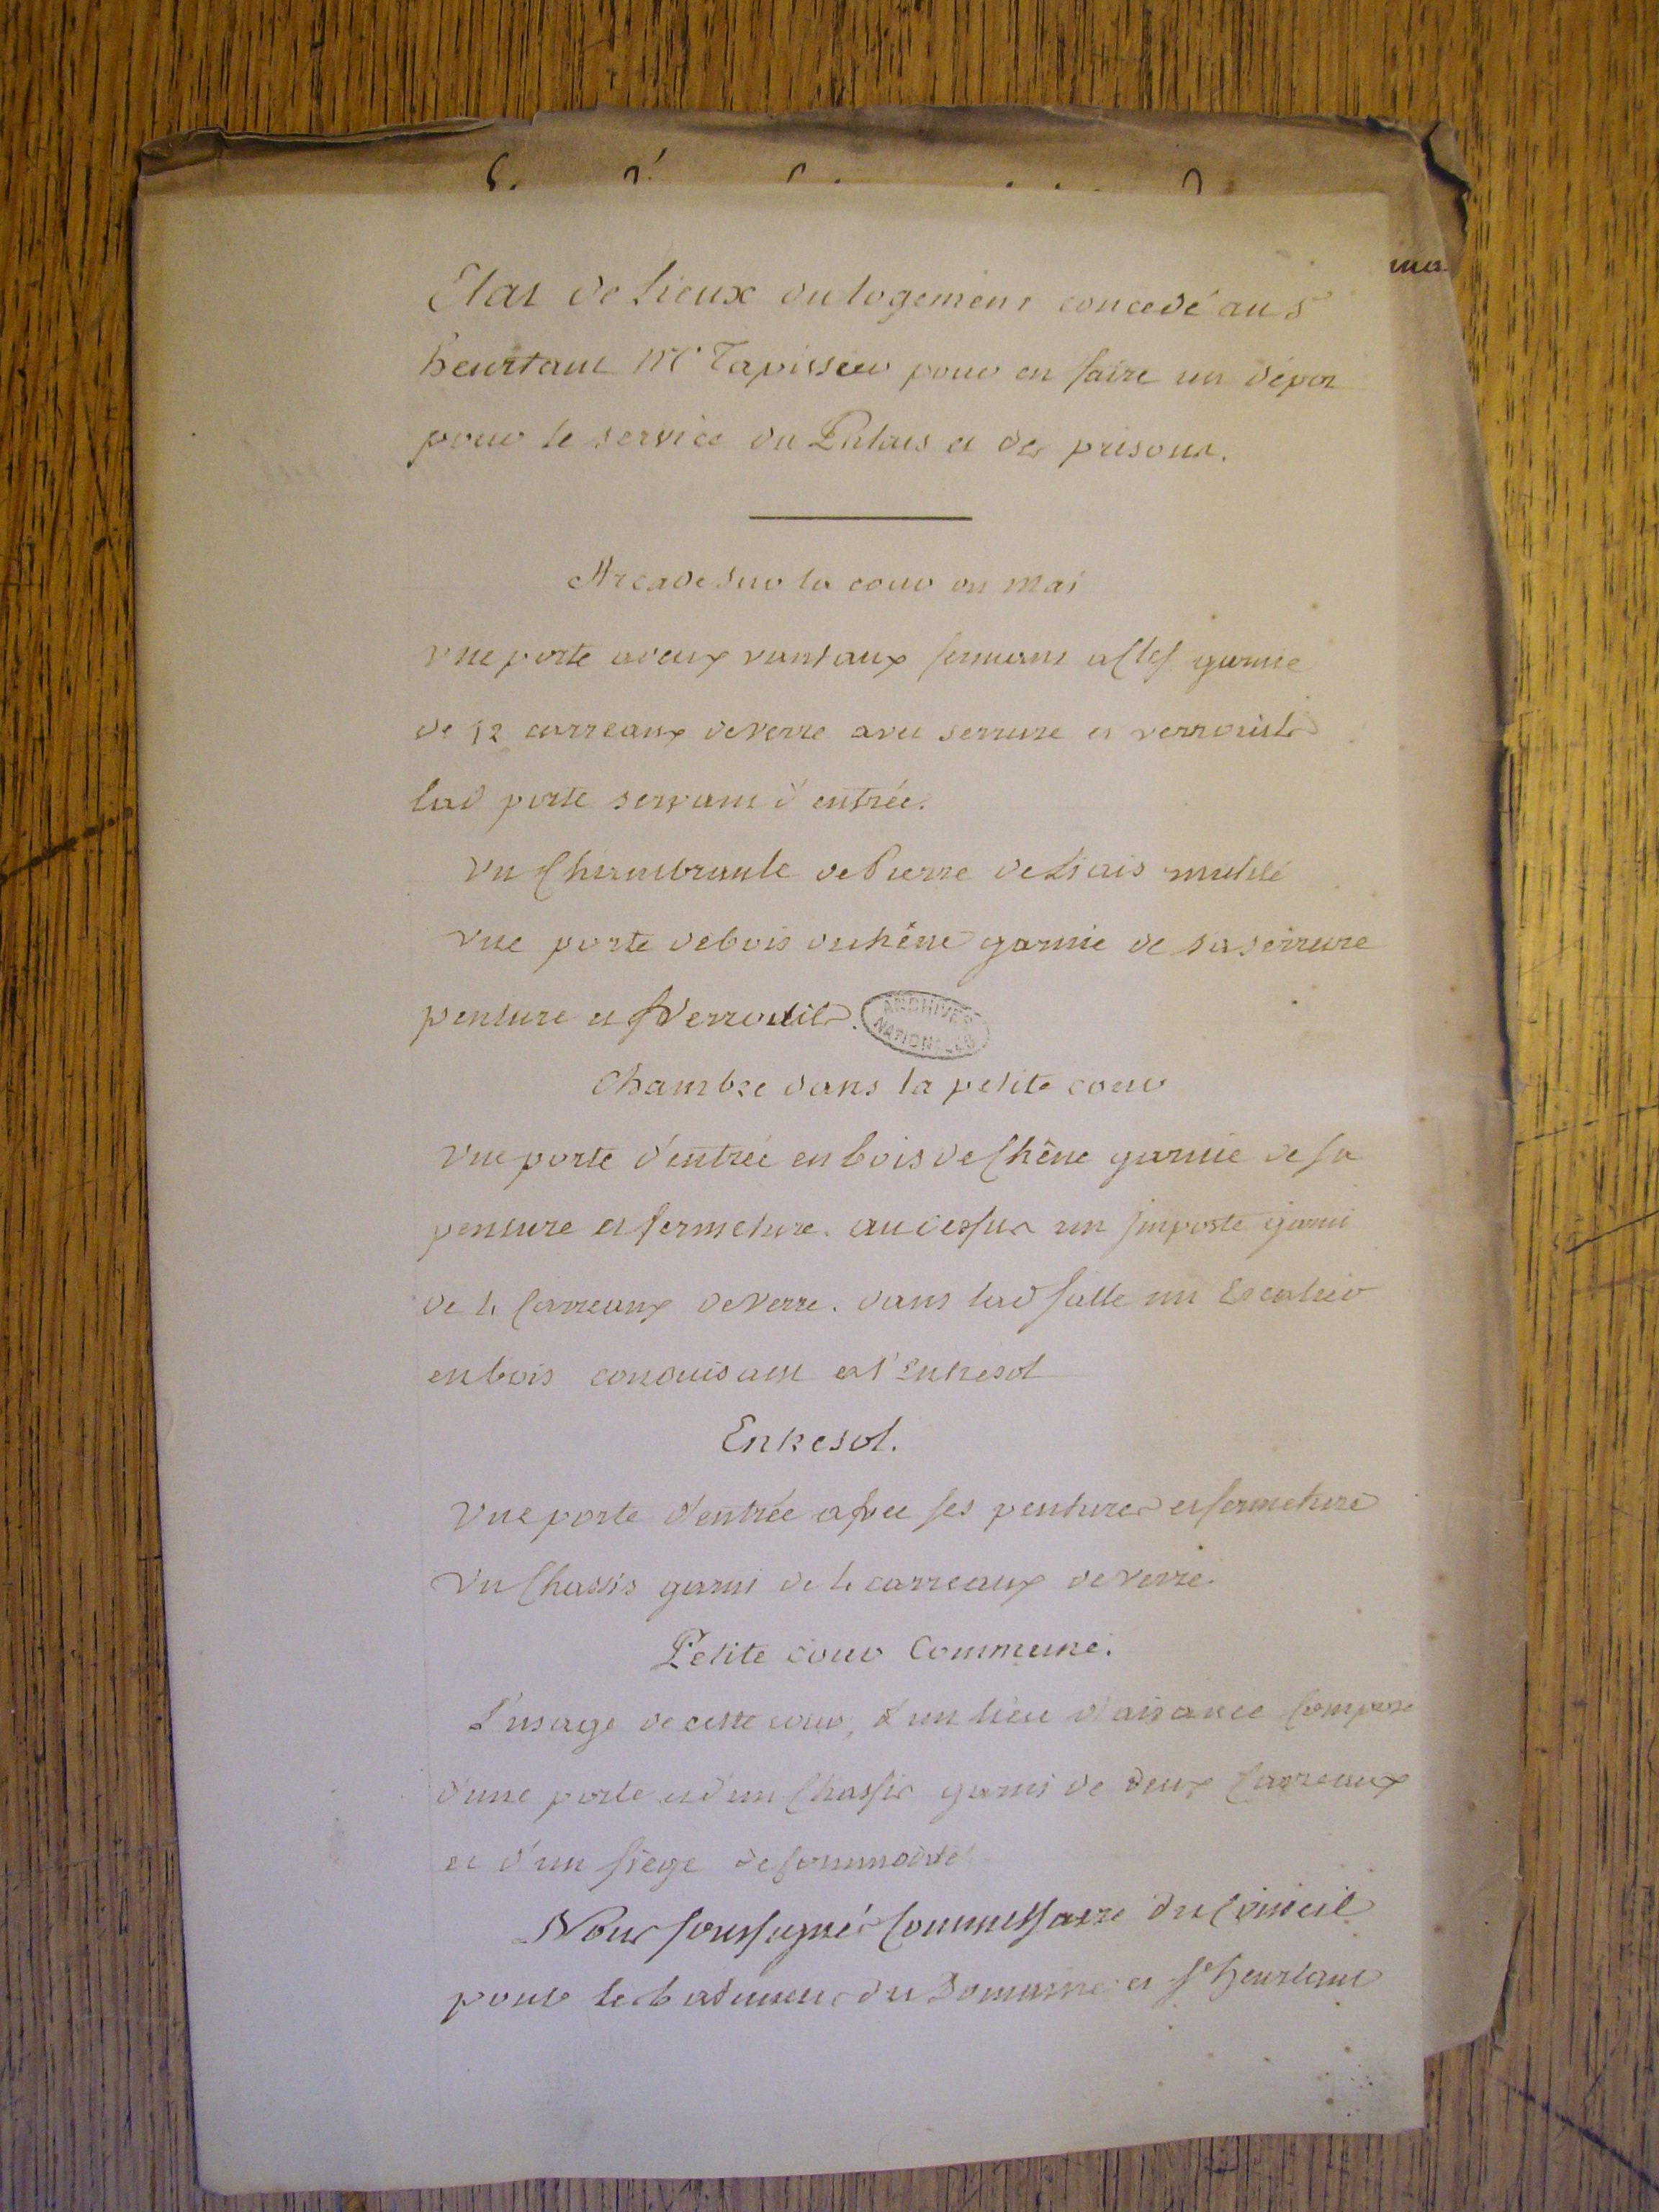 Etat de Lieux du logement concedé au S.
heurtaut M.e Tapissier pour en faire un dépot
pour le service du Palais et des prisons.
Arcade sur la cour du Mai
Une porte a deux vantaux fermant a Clef garnie
de 12 carreaux de verre avec serrure et verrouils
lad porte servant d'entrée.
Un Chambranle de Pierre de Liais mutilé
Une porte de bois de chêne garnie de sa serrure
penture et Verrouils.
ARCHIVES
NATIONALES
Chambre dans la petite cour
Une porte d'entrée en bois de Chêne garnie de sa
penture et fermeture. au dessus un imposte garni
de 4 Carreaux de Verre. dans lad Salle un Escalier
en bois conduisant a l'Entresol
Entresol.
Une porte d'entrée avec ses pentures et fermeture
Un Chassis garni de 4 carreaux de verre.
Petite cour Commune.
L'usage de cette cour, d'un lieu d'aisance Composé
d'une porte et d'un Chassis garni de deux Carreaux
et d'un siege de Commodité
Nous soussignés Commissaire du Conseil
pour les batimens du Domaine et S.r heurtaut